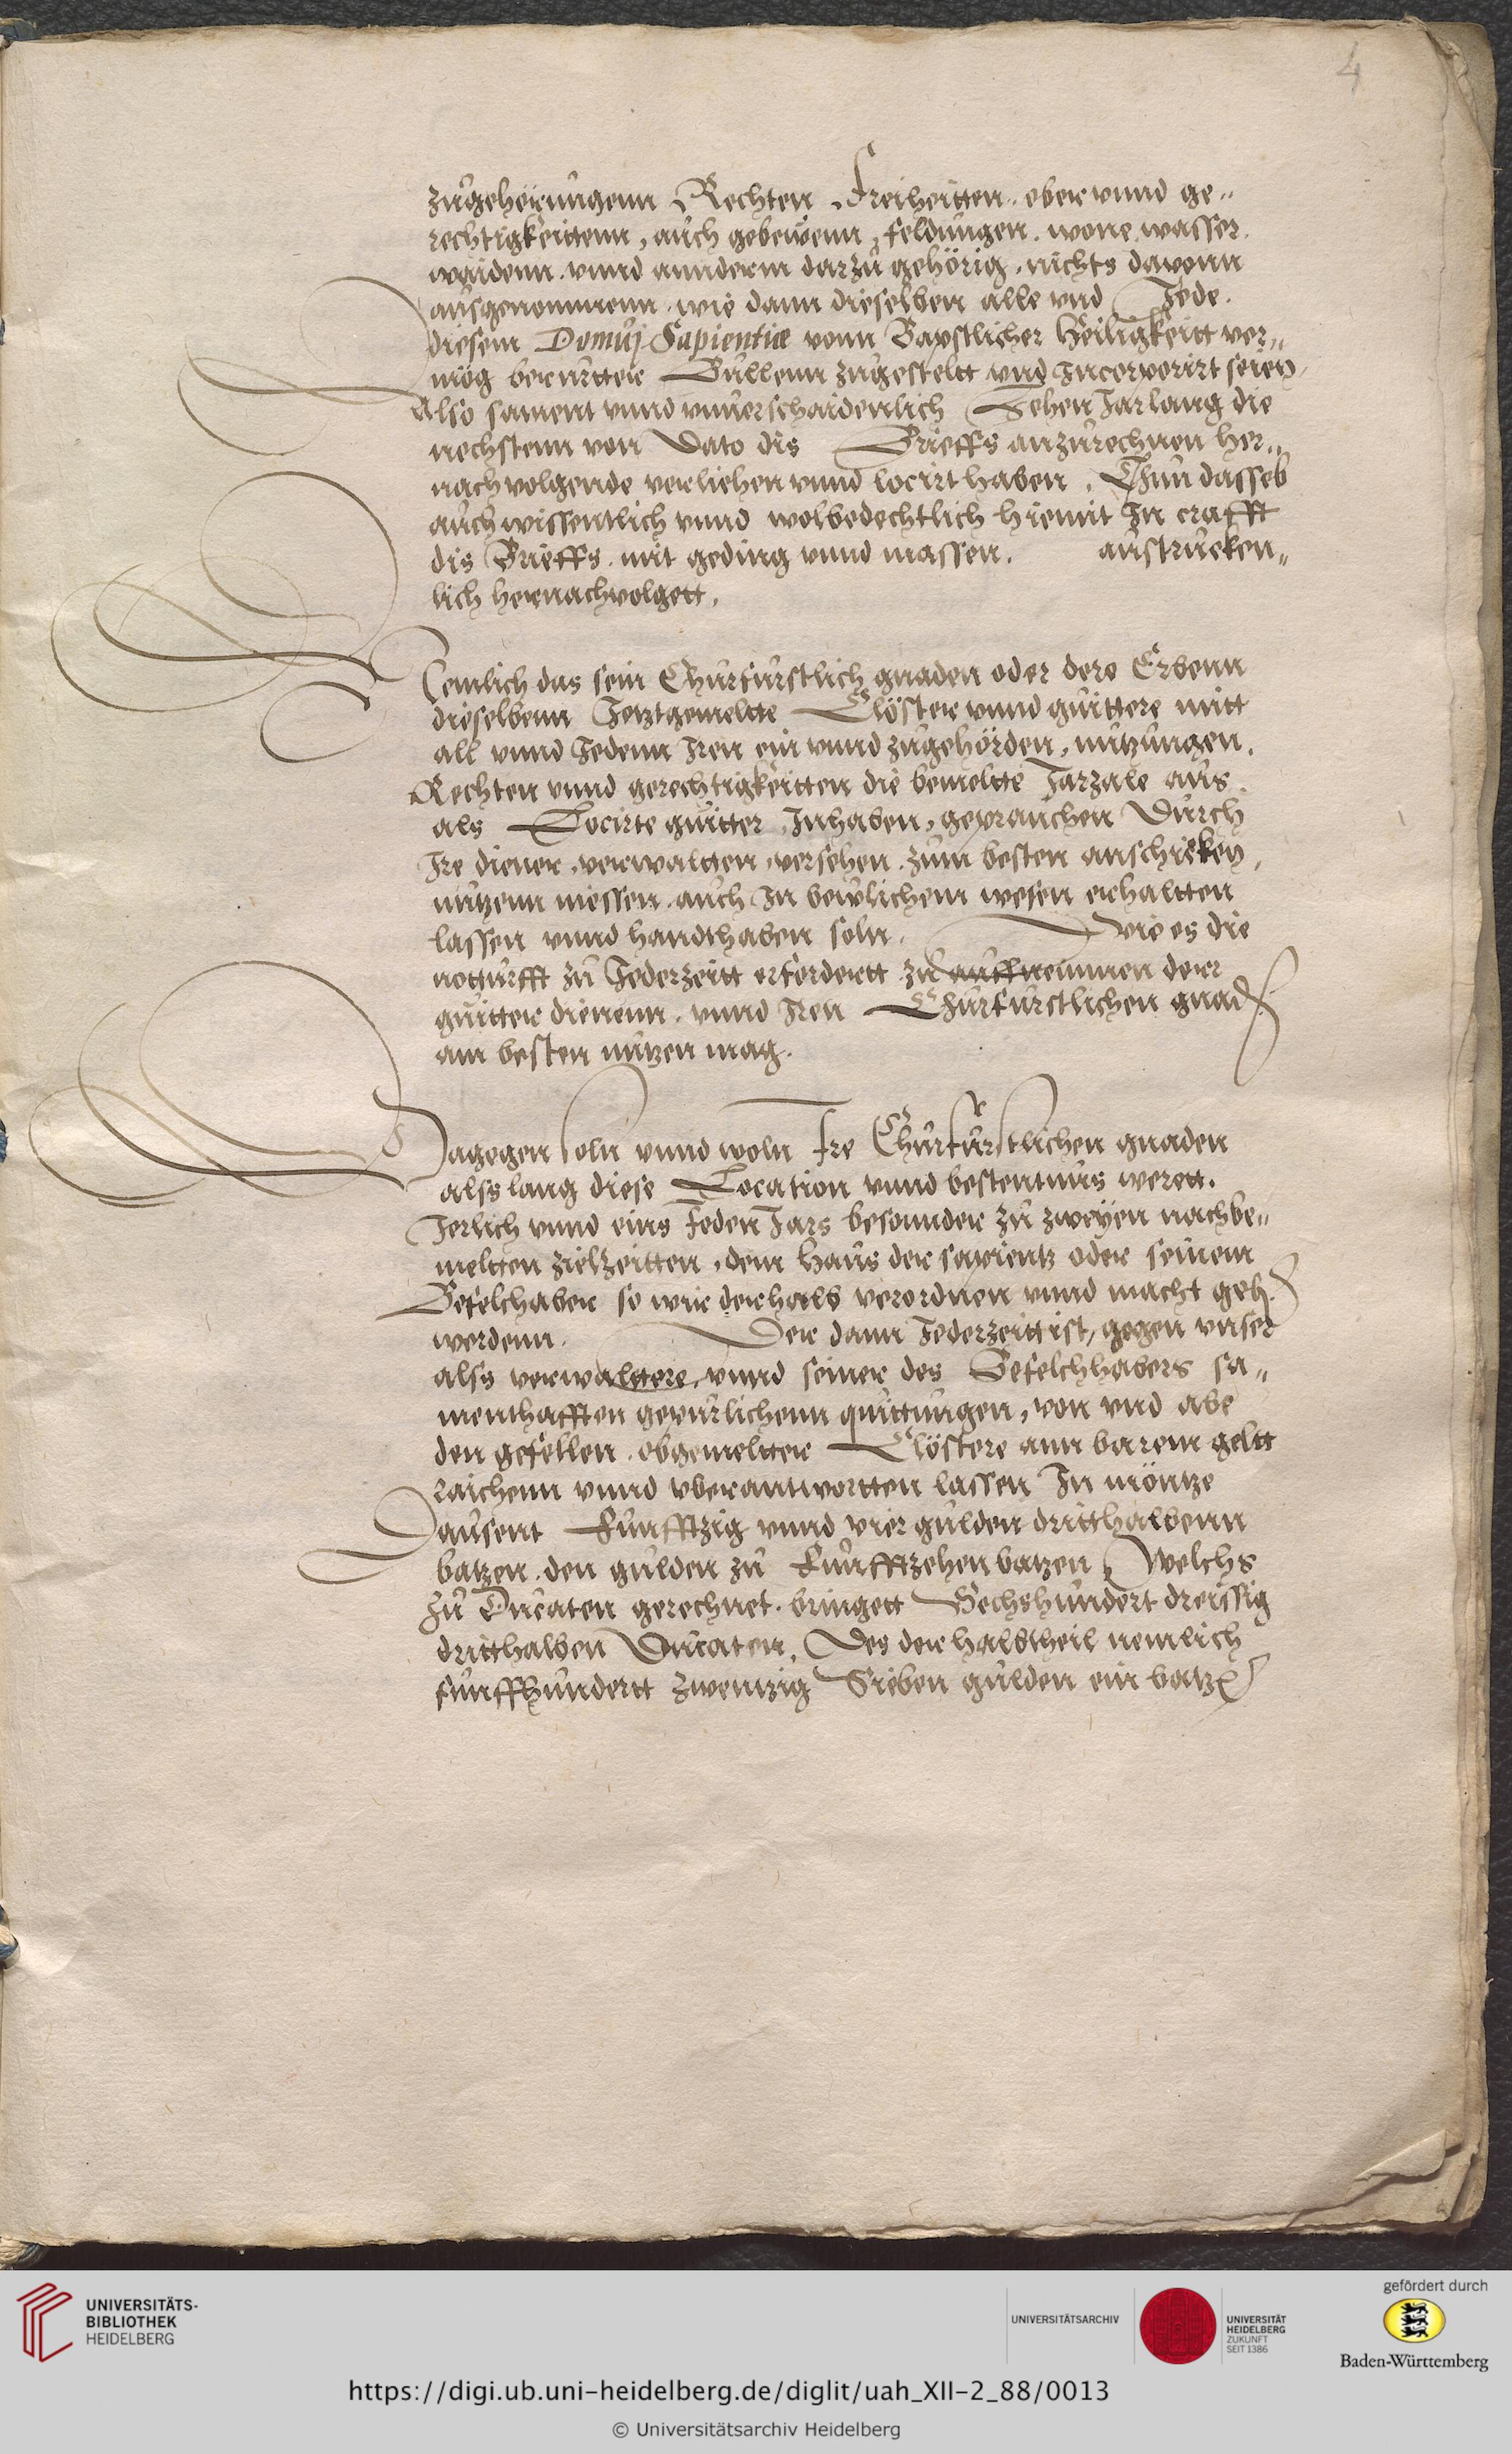 4
zugeherungenn Rechten, Freiheitten, ober vnnd ge„
rechtigkeittenn, auch gebewenn, feldungen, wone, wasser,
waidenn, vnnd annderm darzu gehörig, nichts davonn
ausgenommenn, wie dann dieselben alle vnd Jede,
diesem Domuj Sapientiæ vonn Bapstlicher Heiligkeitt ver„
mög berurtter Bullenn zugesteltt vnd Incorporirt seien,
Also sament vnnd vnuerschaidenlich Zehen Jar lang die
nechstenn von Dato dis Brieffs anzurechnen her„
nachvolgende verliehen vnnd locirt haben, Thun dasselb
auch wissentlich vnnd wolbedechtlich hiemit In crafft
dis Brieffs, mit geding vnnd massen, austrucken„
lich hernachvolgett,
Nemlich das sein Churfurstlich gnaden oder dero Erbenn
dieselbenn Jetztgemeltte Clöster vnnd guittere mitt
all vnnd Jedenn Iren ein vnnd zugehörden, nutzungen,
Rechten vnnd gerechtigkeitten die bemeltte Jarzale aus,
als Locirte guitter Inhaben, geprauchen Durch
Ire diener, verwaltten, versehen, zum besten anschicken,
nutzenn niessen, auch In bewlichem wesen erhaltten
lassen vnnd handthaben soln, Wie es die
notturfft zu Jederzeitt erfordertt zu auffnemmen derer
guitter dienenn, vnnd Iren Churfurstlichen gnaden
am besten nutzen mag.
Dagegen soln vnnd woln Ire Churfurstlichen gnaden
alss lang diese Location vnnd bestentnus werett,
Jerlich vnnd eins Jeden Jars besonnder zu zweyen nachbe„
meltten zielzeitten, dem Haus der sapientz oder seinem
Befelchaber so wir derhalb verordnen vnnd macht geben
werdenn, Der dann Jederzeitt ist, gegen vnser
alss verwalttere, vnnd seiner des Befelchhabers sa„
menthafften gepurlichenn quittungen, von vnd abe
den gefellen, obgemeltter Clöstere ann barem geltt
raichenn vnnd vberantwortten lassen In möntze
Dausent Funfftzig vnnd vier gulden dritthalbenn
batzen, den gulden zu Funfftzehen batzen, Welchs
zu Ducaten gerechnet, bringett Sechshundert dreissig
dritthalben Ducaten, Des der halbtheil nemlich
funffhundertt zwentzig Sieben gulden ein batzen
UNIVERSITÄTS-
BIBLIOTHEK
HEIDELBERG
UNIVERSITÄTSARCHIV
UNIVERSITÄT
HEIDELBERG
ZUKUNFT
SEIT 1386
gefördert durch
Baden-Württemberg
https://digi.ub.uni-heidelberg.de/diglit/uah_XII-2_88/0013
© Universitätsarchiv Heidelberg